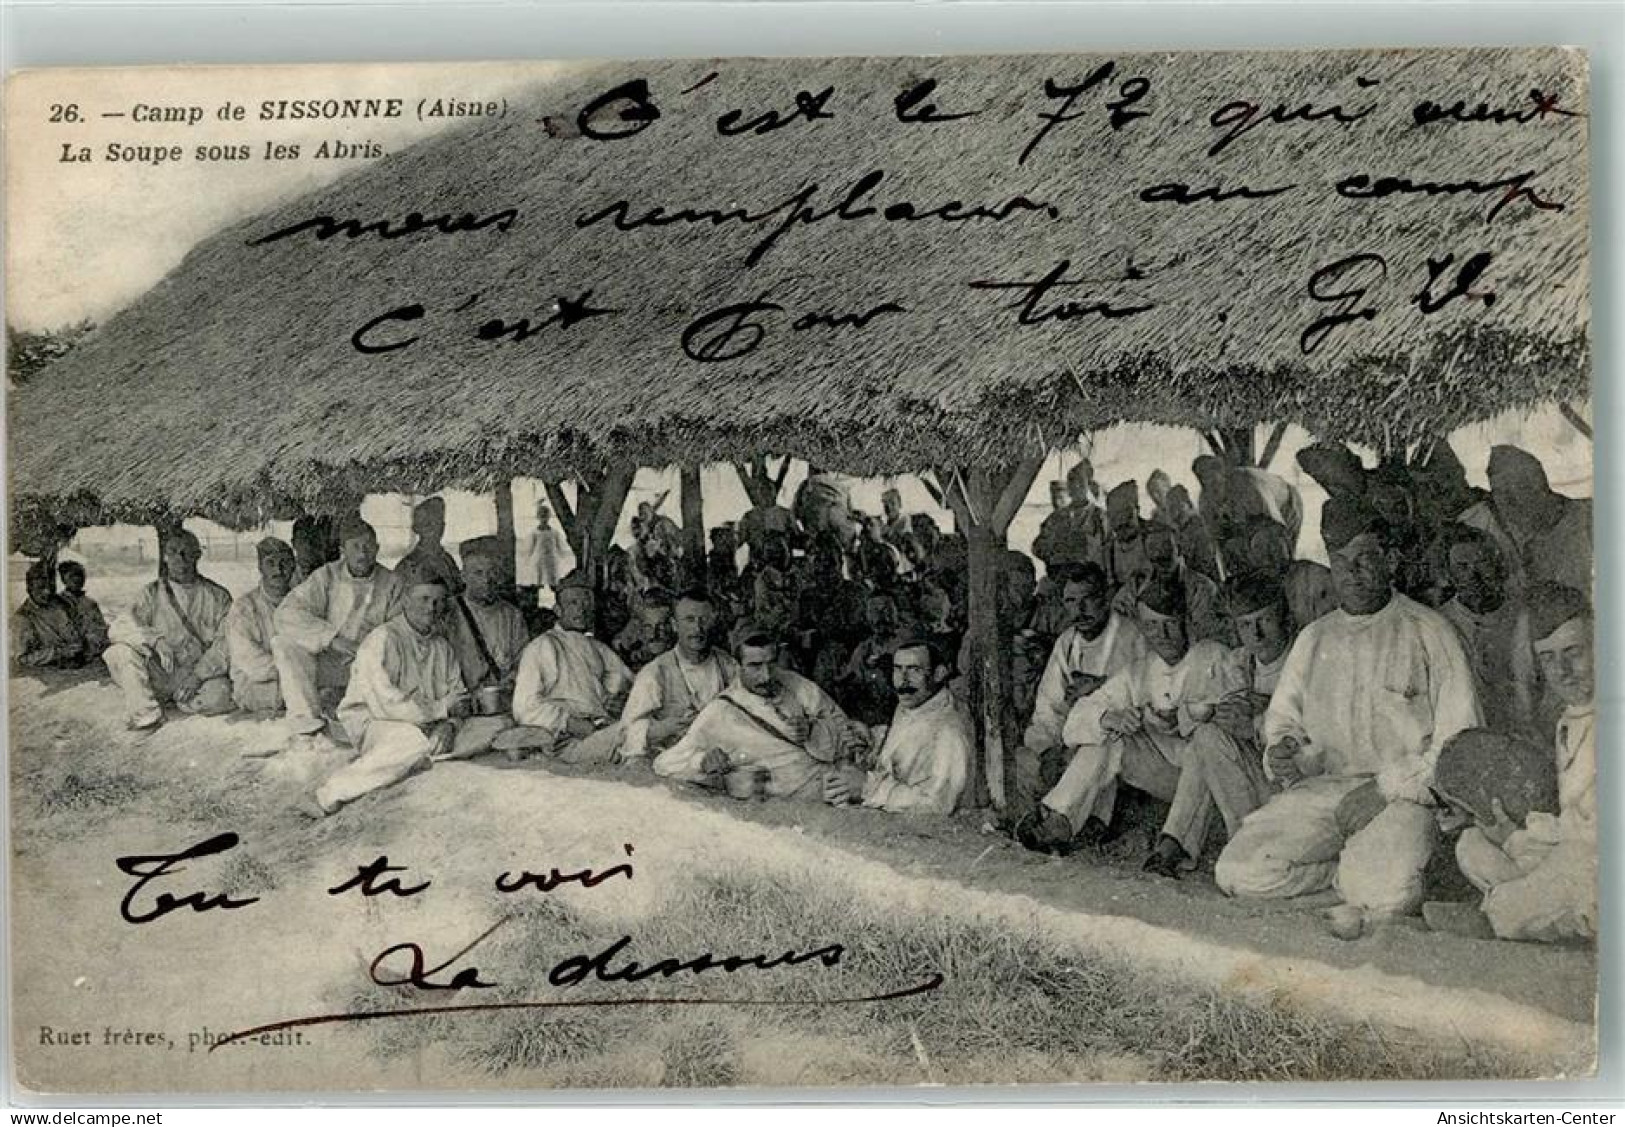 26. — Camp de SISSONNE (Aisne)
La Soupe sous les Abris.
C'est le 72 qui vient
nous remplacer. au camp
c'est pour toi. G.V.
Tu te voi
La dessous
Ruet frères, phot.-edit.
Ansichtskarten-Center